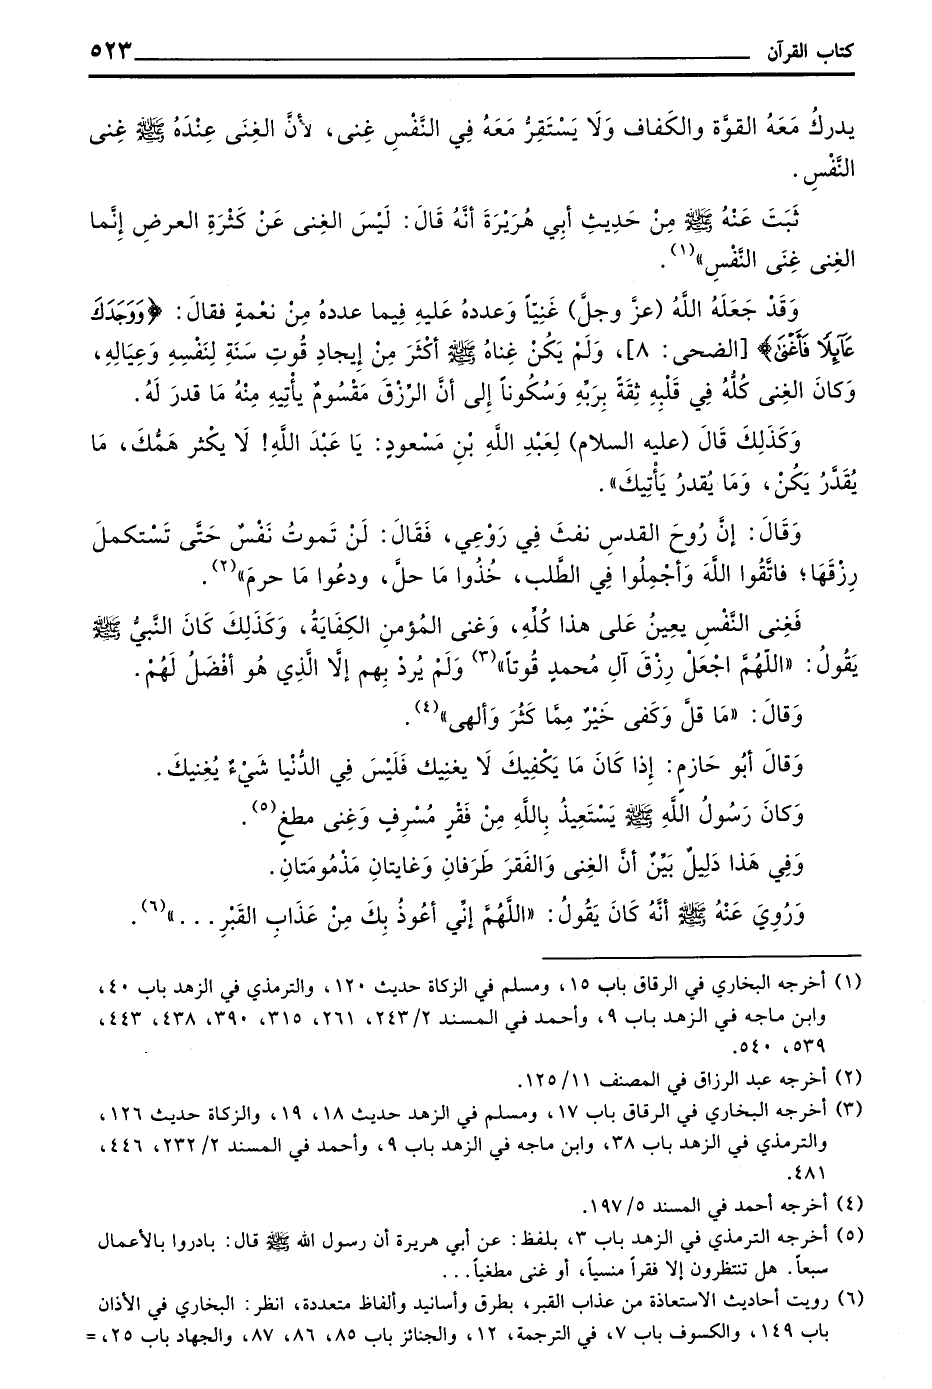 كتاب القرآن ٥٢٣
يدركُ مَعَهُ القوَّة والكَفاف وَلَا يَسْتَقِرُّ مَعَهُ فِي النَّفْسِ غِنى، لأنَّ الغِنَى عِنْدَهُ ﷺ غِنى
النَّفْسِ.
ثَبَتَ عَنْهُ ﷺ مِنْ حَدِيثِ أبِي هُرَيْرَةَ أنَّهُ قَالَ: لَيْسَ الغِنى عَنْ كَثْرَةِ العرضِ إنَّما
الغِنى غِنَى النَّفْسِ»(١).
وَقَدْ جَعَلَهُ اللَّهُ (عزَّ وجلَّ) غَنِيّاً وَعددهُ عَليهِ فِيما عددهُ مِنْ نعْمةٍ فقالَ: ﴿وَوَجَدَكَ
عَآئِلًا فَأَغْنَىٰ﴾ [الضحى: ٨]، وَلَمْ يَكُنْ غِناهُ ﷺ أكثَرَ مِنْ إيجادِ قُوتِ سَنَةٍ لِنَفْسِهِ وَعِيَالِهِ،
وَكانَ الغِنى كُلُّهُ فِي قَلْبِهِ ثِقَةً بِرَبِّهِ وَسُكُوناً إلى أنَّ الرِّزْقَ مَقْسُومٌ يأْتِيهِ مِنْهُ مَا قدرَ لَهُ.
وَكَذَلِكَ قَالَ (عليه السلام) لِعَبْدِ اللَّهِ بْنِ مَسْعودٍ: يَا عَبْدَ اللَّهِ! لَا يكْثر هَمُّكَ، مَا
يُقَدَّرُ يَكُنْ، وَمَا يُقدرُ يَأْتِيكَ».
وَقَالَ: إنَّ رُوحَ القدسِ نفثَ فِي رَوْعِي، فَقَالَ: لَنْ تَموتُ نَفْسٌ حَتَّى تَسْتكملَ
رِزْقَهَا؛ فاتَّقُوا اللَّهَ وَأجْمِلُوا فِي الطَّلبِ، خُذُوا مَا حلَّ، ودعُوا مَا حرمَ»(٢).
فَغِنى النَّفْسِ يعِينُ عَلى هذا كُلِّهِ، وَغنى المُؤمنِ الكِفَايَةُ، وَكَذَلِكَ كَانَ النَّبِيُّ ﷺ
يَقُولُ: «اللّهُمَّ اجْعَلْ رِزْقَ آلِ مُحمدٍ قُوتاً»(٣) وَلَمْ يُرِدْ بِهم إلَّا الَّذِي هُو أفْضَلُ لَهُمْ.
وَقالَ: «مَا قلَّ وَكَفى خَيْرٌ مِمَّا كَثُرَ وَألهى»(٤).
وَقالَ أبُو حَازِمٍ: إذا كَانَ مَا يَكْفِيكَ لَا يغنِيك فَلَيْسَ فِي الدُّنْيا شَيْءٌ يُغْنِيكَ.
وَكانَ رَسُولُ اللَّهِ ﷺ يَسْتَعِيذُ بِاللَّهِ مِنْ فَقْرٍ مُسْرِفٍ وَغِنى مطغٍ(٥).
وَفِي هَذا دَلِيلٌ بَيِّنٌ أنَّ الغِنى وَالفَقرَ طَرَفانِ وَغايتانِ مَذْمُومَتانِ.
وَرُوِيَ عَنْهُ ﷺ أنَّهُ كَانَ يَقُولُ: «اللَّهُمَّ إنِّي أعُوذُ بِكَ مِنْ عَذَابِ القَبْرِ...»(٦).
(١) أخرجه البخاري في الرقاق باب ١٥، ومسلم في الزكاة حديث ١٢٠، والترمذي في الزهد باب ٤٠،
وابن ماجه في الزهد باب ٩، وأحمد في المسند ٢/ ٢٤٣، ٢٦١، ٣١٥، ٣٩٠، ٤٣٨، ٤٤٣،
٥٣٩، ٥٤٠.
(٢) أخرجه عبد الرزاق في المصنف ١١/ ١٢٥.
(٣) أخرجه البخاري في الرقاق باب ١٧، ومسلم في الزهد حديث ١٨، ١٩، والزكاة حديث ١٢٦،
والترمذي في الزهد باب ٣٨، وابن ماجه في الزهد باب ٩، وأحمد في المسند ٢/ ٢٣٢، ٤٤٦،
٤٨١.
(٤) أخرجه أحمد في المسند ٥/ ١٩٧.
(٥) أخرجه الترمذي في الزهد باب ٣، بلفظ: عن أبي هريرة أن رسول الله ﷺ قال: بادروا بالأعمال
سبعاً. هل تنتظرون إلا فقراً منسياً، أو غنى مطغياً...
(٦) رويت أحاديث الاستعاذة من عذاب القبر، بطرق وأسانيد وألفاظ متعددة، انظر: البخاري في الأذان
باب ١٤٩، والكسوف باب ٧، في الترجمة، ١٢، والجنائز باب ٨٥، ٨٦، ٨٧، والجهاد باب ٢٥، =